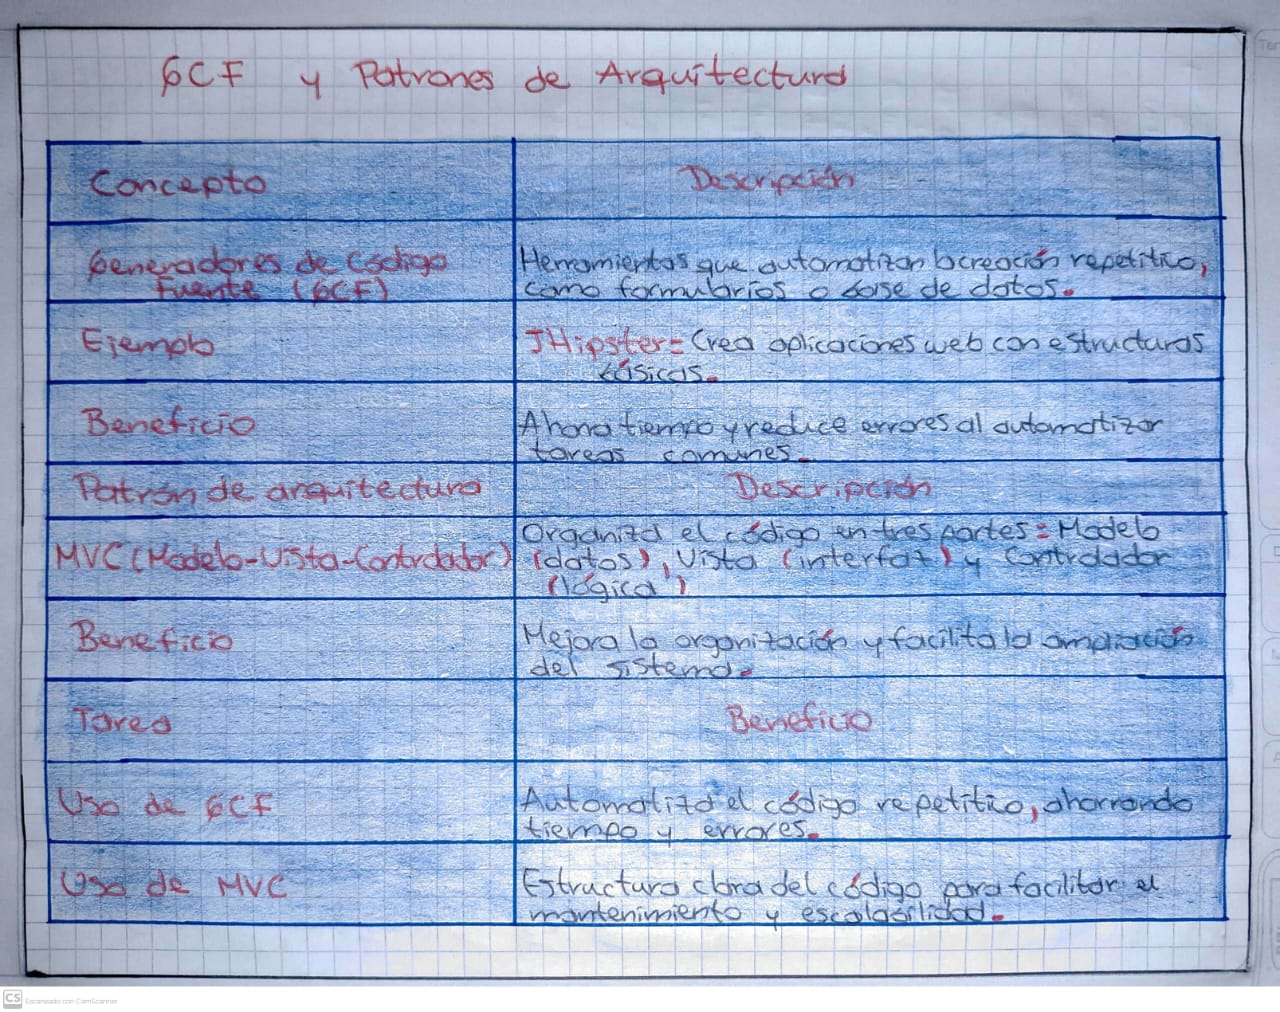 GCF y Patrones de Arquitectura
Concepto
Descripción
Generadores de Código
Fuente (GCF)
Herramientas que automatizan la creación repetitivo,
como formularios o base de datos.
Ejemplo
JHipster= Crea aplicaciones web con estructuras
básicas.
Beneficio
Ahorra tiempo y reduce errores al automatizar
tareas comunes.
Patrón de arquitectura
Descripción
MVC (Modelo-Vista-Controlador)
Organiza el código en tres partes: Modelo
(datos), Vista (interfaz) y Controlador
(lógica)
Beneficio
Mejora la organización y facilita la ampliación
del sistema.
Tarea
Beneficio
Uso de GCF
Automatiza el código repetitivo, ahorrando
tiempo y errores.
Uso de MVC
Estructura clara del código para facilitar el
mantenimiento y escalabilidad.
CS Escaneado con CamScanner